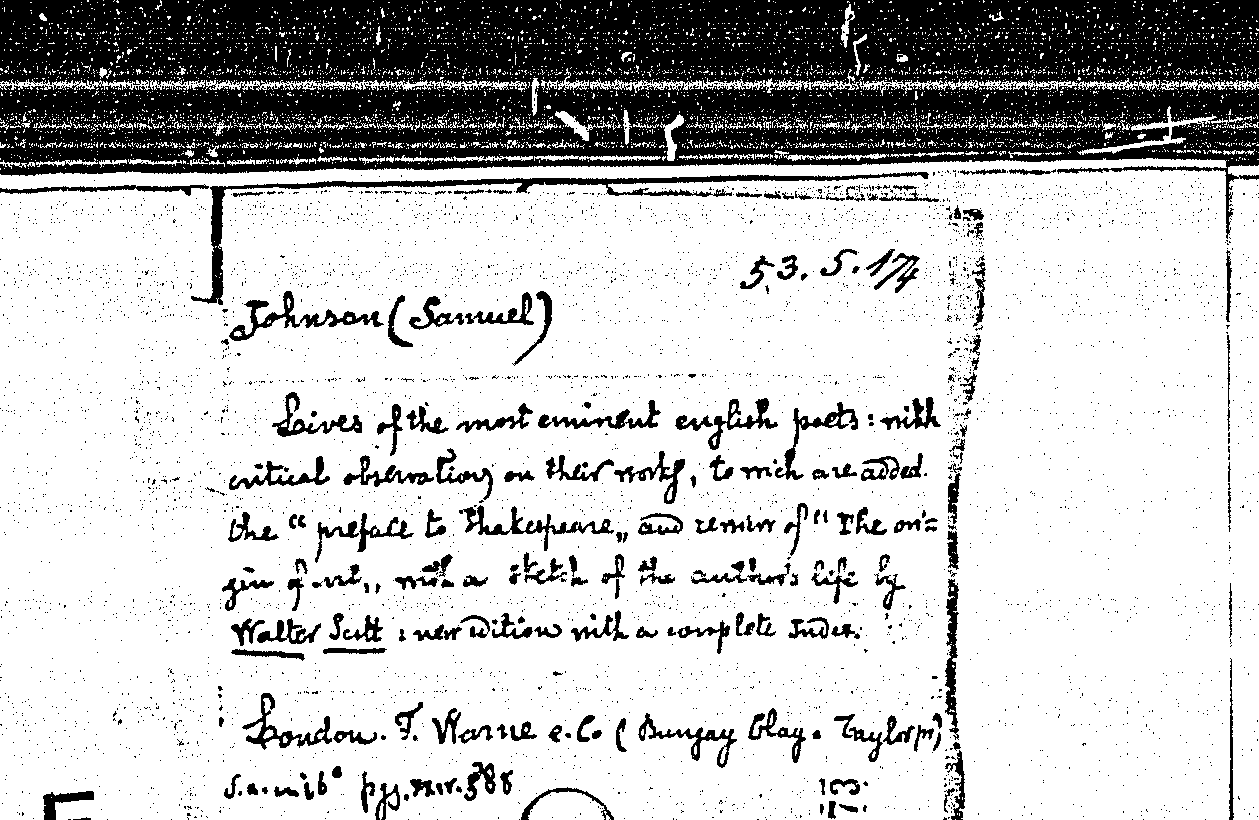 53. 5. 174
Johnson (Samuel)
Lives of the most eminent english poets: with
critical observations on their works, to wich are added
the “ preface to Shakespeare„ and review of “ The ori=
gin of evil„, with a sketch of the author's life by
Walter Scott : new edition with a complete Index.
London. F. Warne e. Co ( Bungay Clay. Taylor pr)
s.a. in 16° pgg. 588